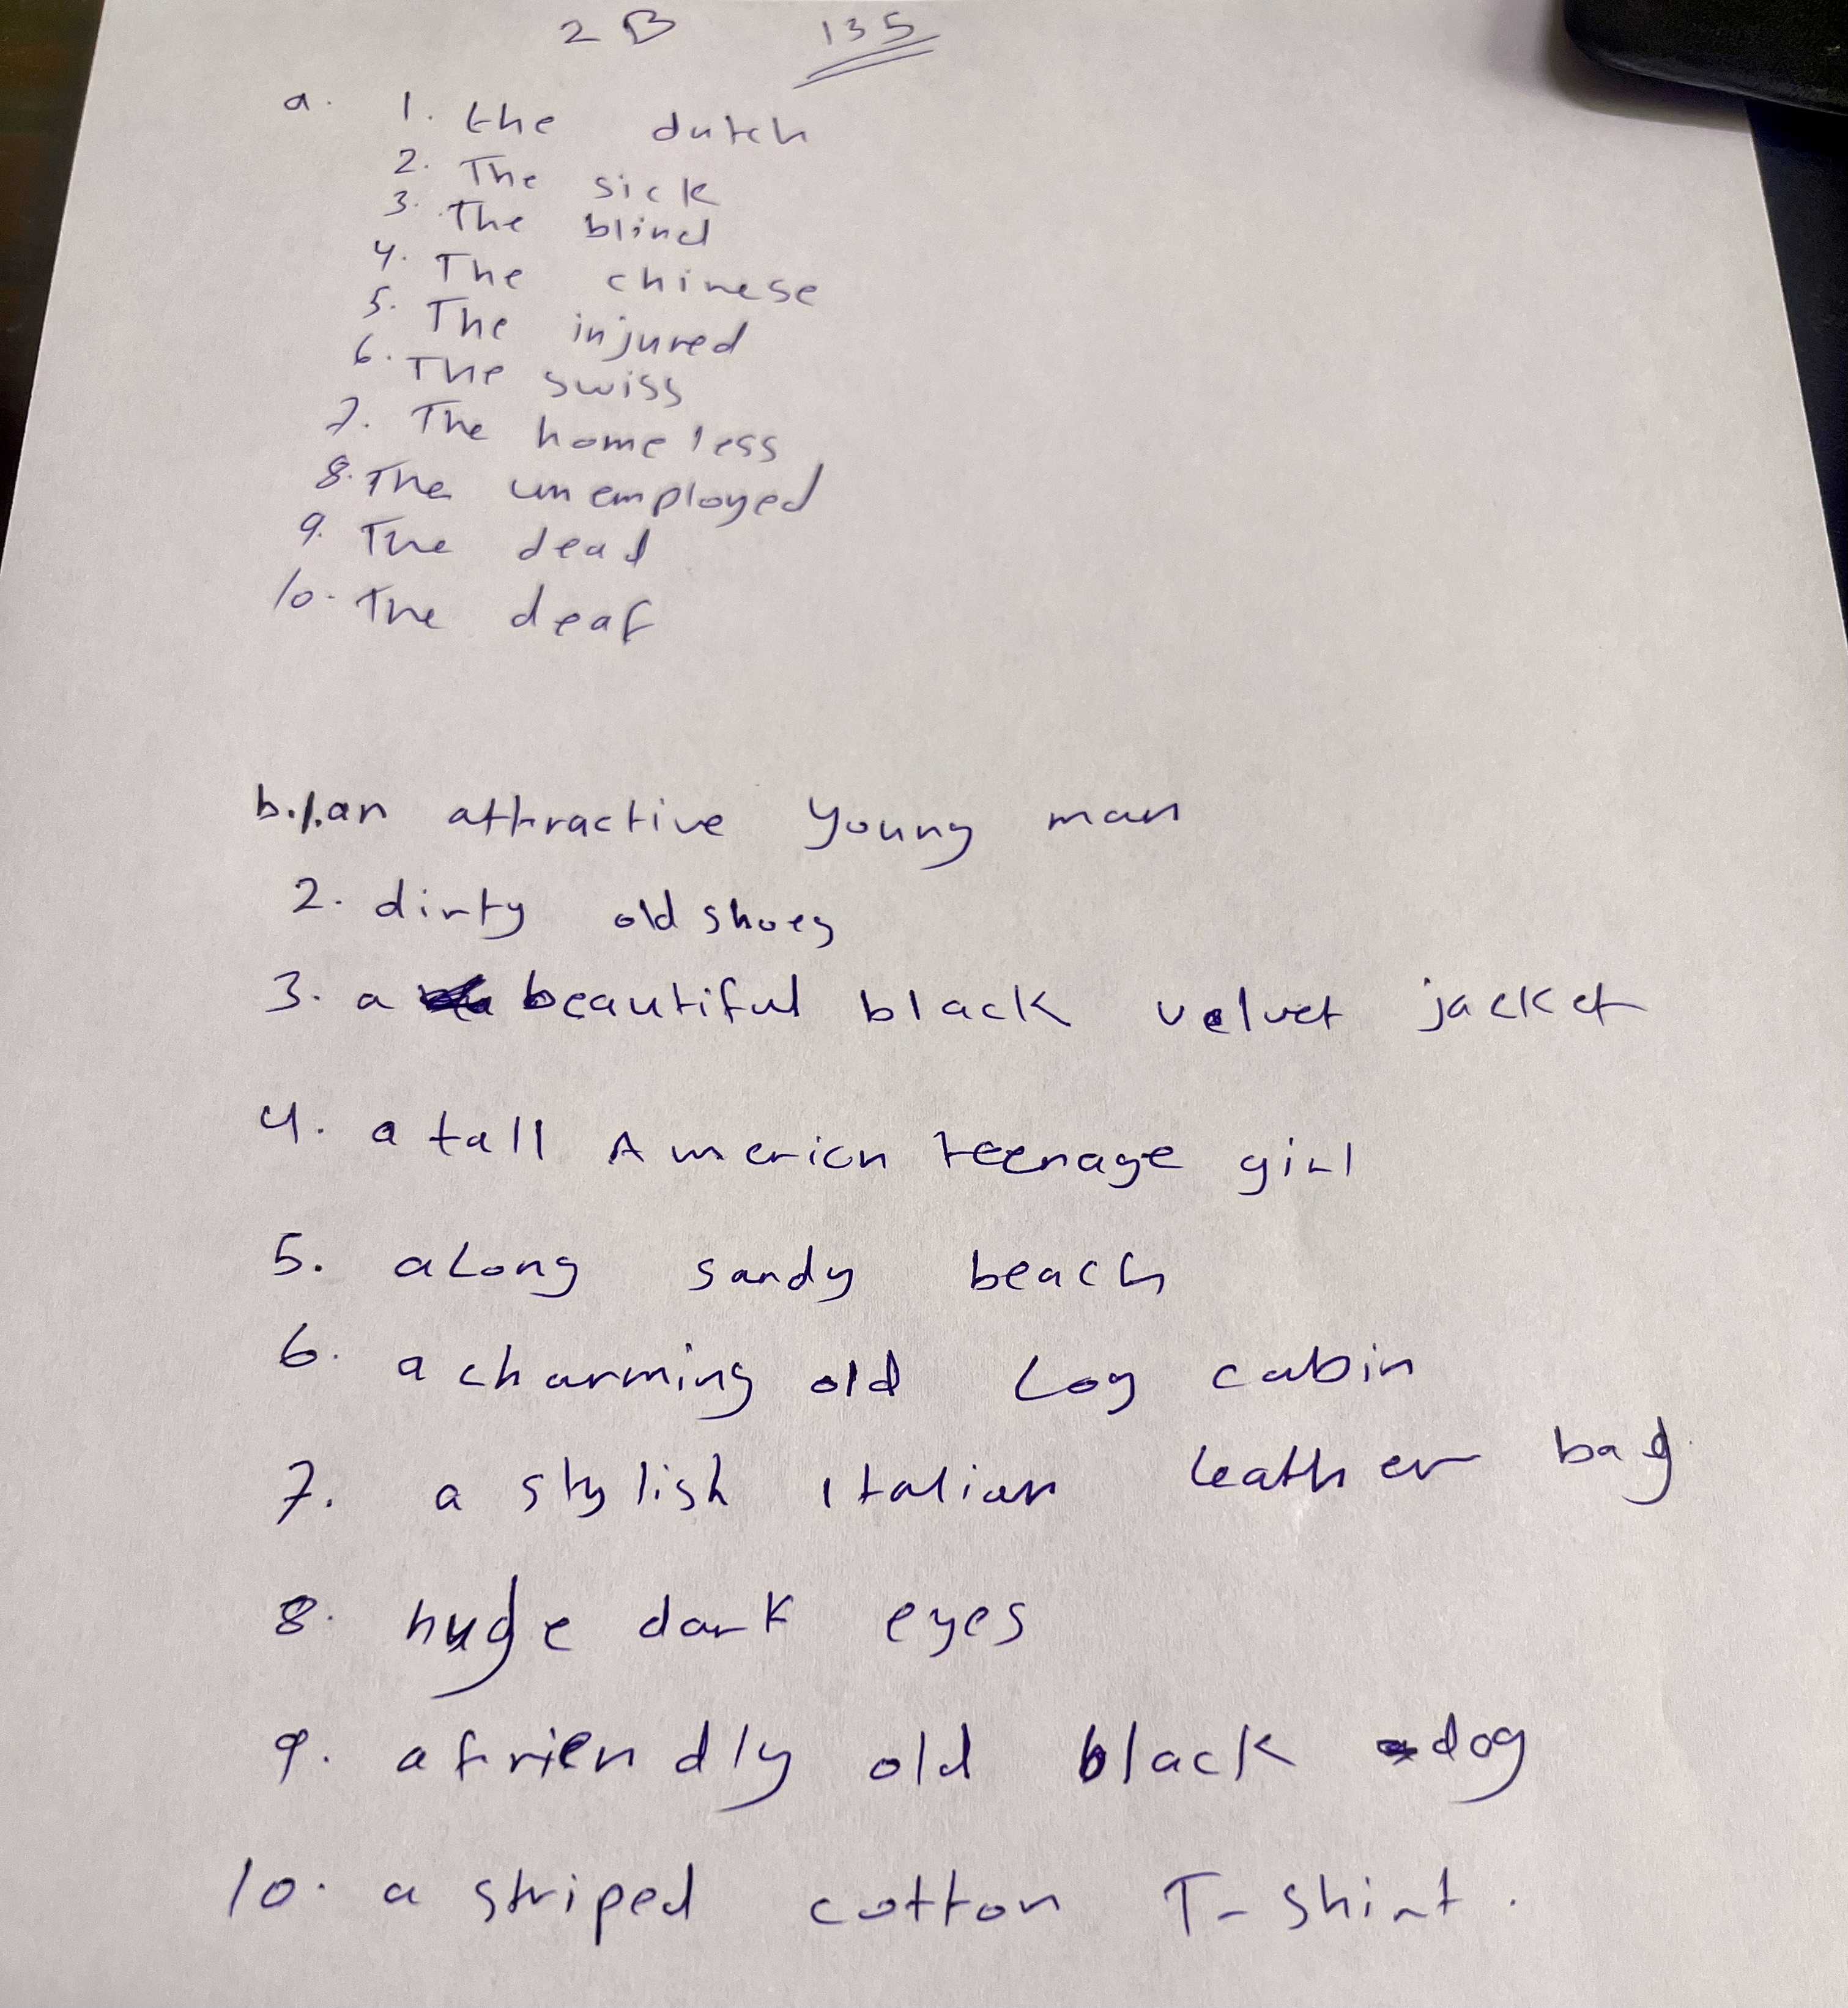 2B 135
a. 1. the dutch
2. The sick
3. The blind
4. The chinese
5. The injured
6. The swiss
7. The homeless
8. The unemployed
9. The dead
10. The deaf
b. 1. an attractive young man
2. dirty old shoes
3. a beautiful black velvet jacket
4. a tall Americn teenage girl
5. a long sandy beach
6. a charming old log cabin
7. a stylish Italian leather bag
8. huge dark eyes
9. a friendly old black dog
10. a striped cotton T-shirt.